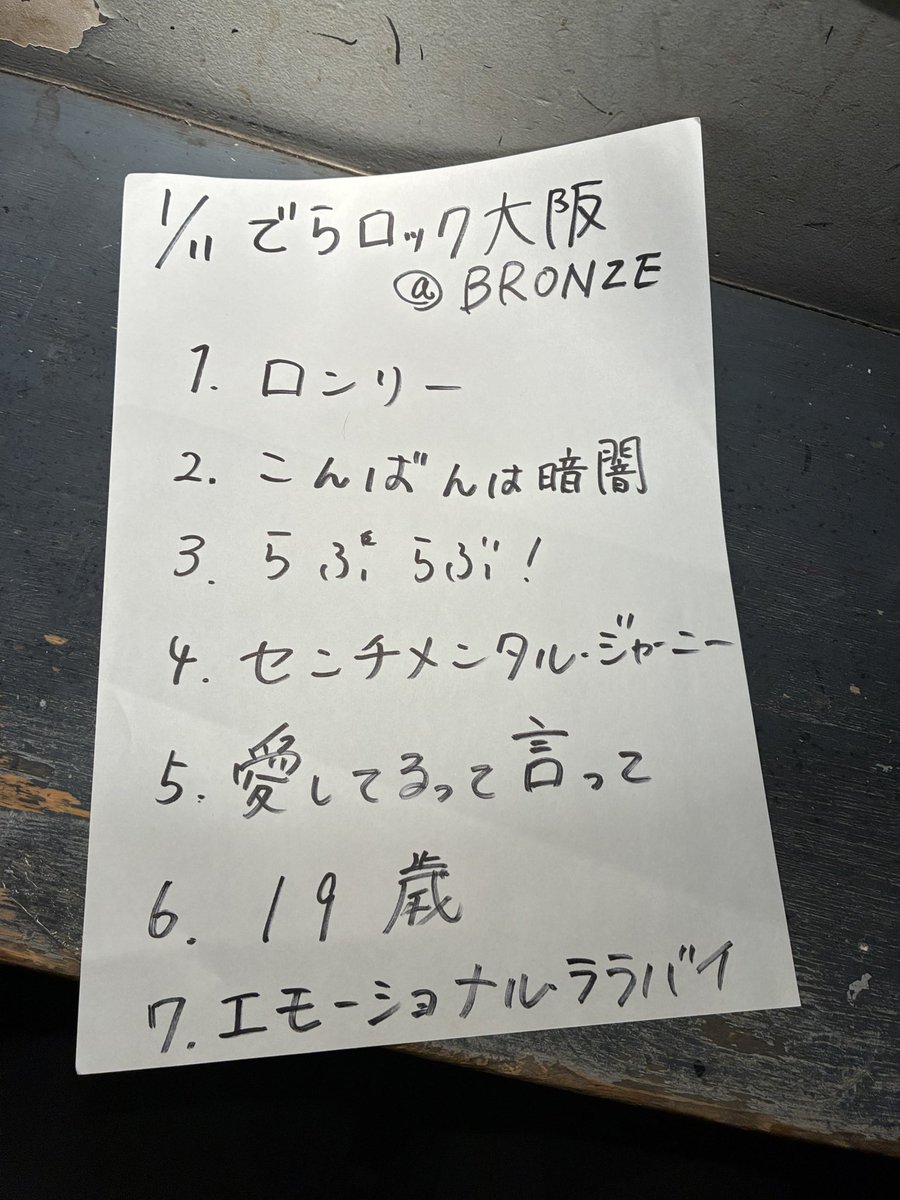 1/11 でらロック大阪
@ BRONZE
1. ロンリー
2. こんばんは暗闇
3. らぶ らぶ!
4. センチメンタル・ジャーニー
5. 愛してるって言って
6. 19歳
7. エモーショナル・ララバイ